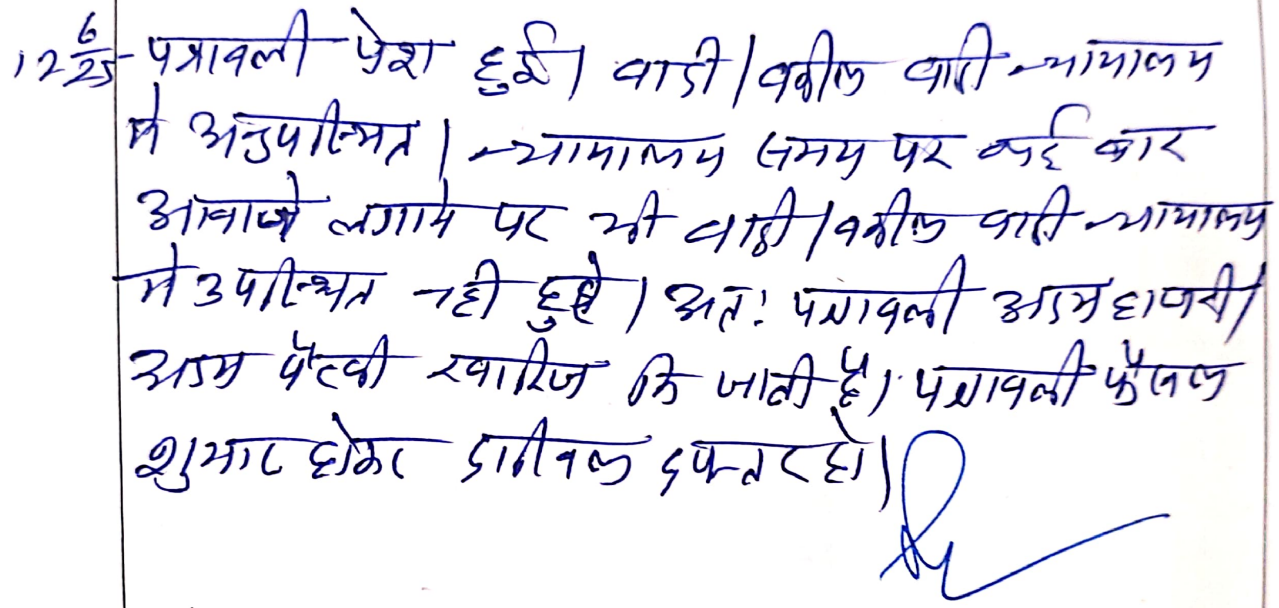 12 6/25 पत्रावली पेश हुई। वादी/वकील वादी न्यायालय
मे अनुपस्थित। न्यायालय समय पर कई बार
आवाजे लगाने पर भी वादी/वकील वादी न्यायालय
मे उपस्थित नही हुये। अतः पत्रावली अदम हाजरी/
अदम पैरवी खारिज कि जाती है। पत्रावली फैसल
शुमार होकर दाखिल दफ्तर हो।